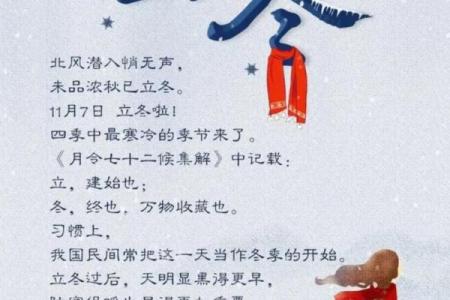 立冬
北风潜入悄无声，
未品浓秋已立冬。
11月7日 立冬啦！
四季中最寒冷的季节来了。
《月令七十二候集解》中记载：
立，建始也；
冬，终也，万物收藏也。
习惯上，
我国民间常把这一天当作冬季的开始。
立冬过后，天明显黑得更早，